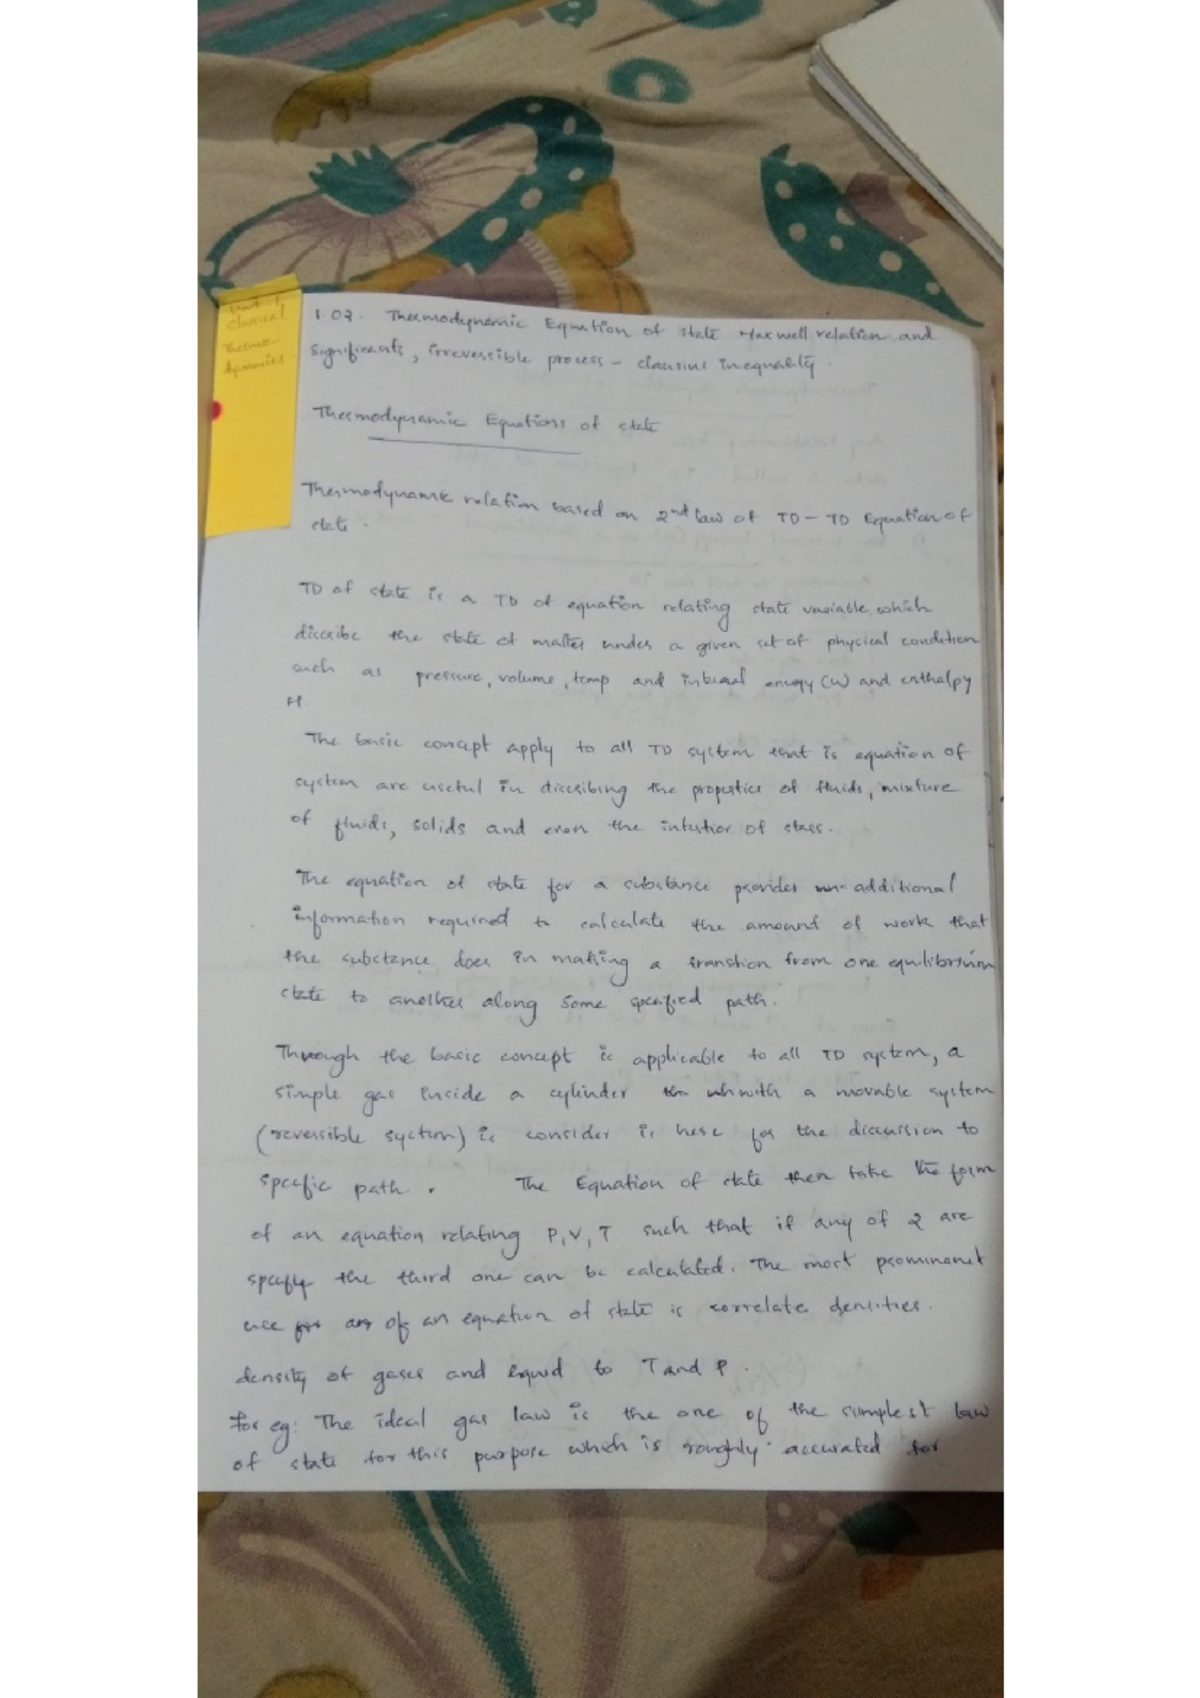 Unit-1
Classical
Thermo-
dynamics
1.02. Thermodynamic Equation of state Maxwell relation and
significants, irreversible process - clausius inequality.
Thermodynamic Equations of state
Thermodynamic relation based on 2nd law of TD - TD Equation of
state.
TD of state is a TD of equation relating state variable which
discribe the state of matter under a given set of physical condition
such as pressure, volume, temp and internal energy (U) and enthalpy
H.
The basic concept apply to all TD system that is equation of
system are useful in discribing the properties of fluids, mixture
of fluids, solids and even the interior of stars.
The equation of state for a substance provides additional
information required to calculate the amount of work that
the substance does in making a transtion from one equilibrium
state to another along some specified path.
Through the basic concept is applicable to all TD system, a
simple gas inside a cylinder with a movable system
(reversible system) is consider is here for the discussion to
specfic path. The Equation of state then take the form
of an equation relating P, V, T such that if any of 2 are
specify the third one can be calculated. The most prominanet
use of an equation of state is correlate densities.
density of gases and liquid to T and P.
For eg: The ideal gas law is the one of the simplest law
of state for this purpose which is roughly accurated for